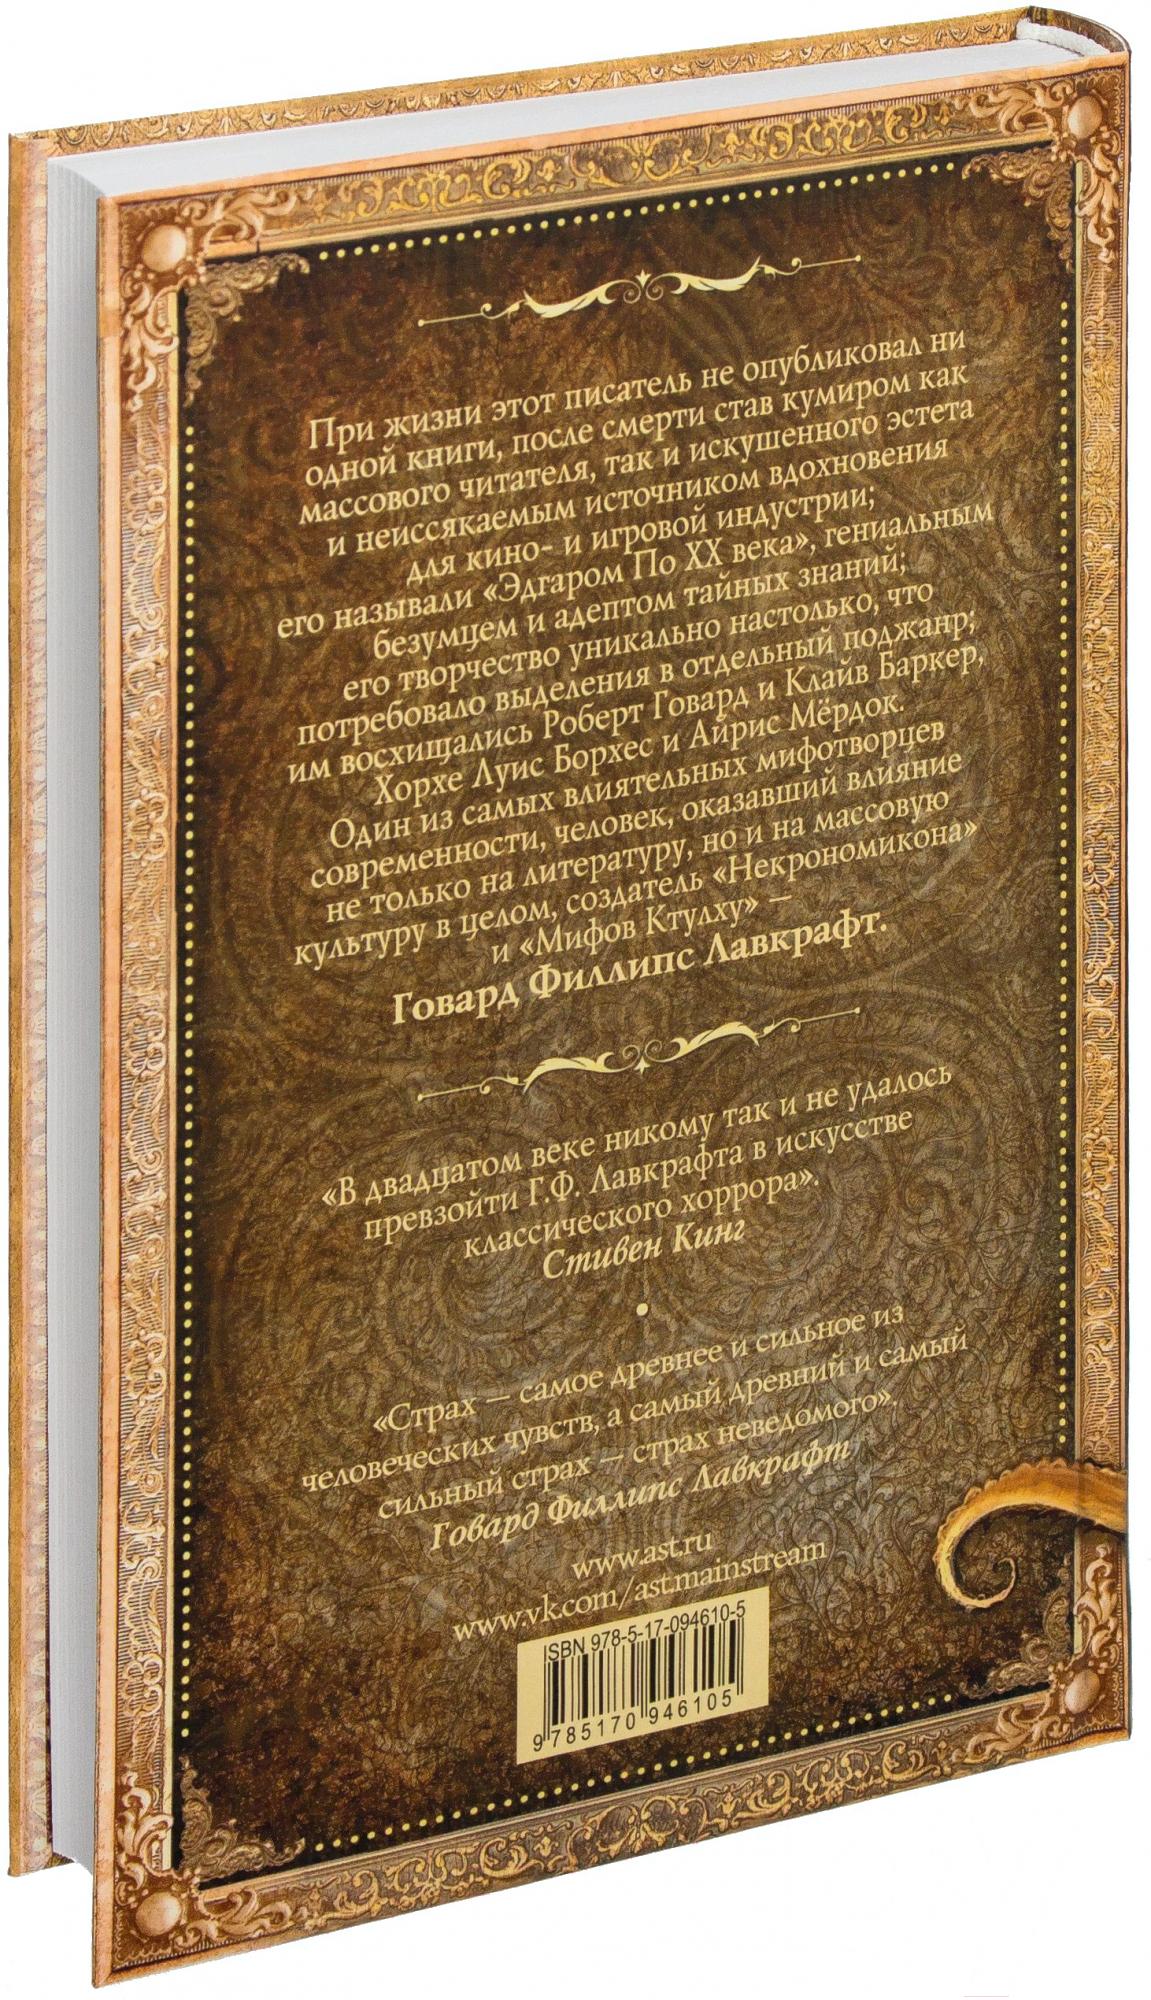 При жизни этот писатель не опубликовал ни
одной книги, после смерти став кумиром как
массового читателя, так и искушенного эстета
и неиссякаемым источником вдохновения
для кино- и игровой индустрии;
его называли «Эдгаром По XX века», гениальным
безумцем и адептом тайных знаний;
его творчество уникально настолько, что
потребовало выделения в отдельный поджанр;
им восхищались Роберт Говард и Клайв Баркер,
Хорхе Луис Борхес и Айрис Мёрдок.
Один из самых влиятельных мифотворцев
современности, человек, оказавший влияние
не только на литературу, но и на массовую
культуру в целом, создатель «Некрономикона»
и «Мифов Ктулху» —
Говард Филлипс Лавкрафт.
«В двадцатом веке никому так и не удалось
превзойти Г.Ф. Лавкрафта в искусстве
классического хоррора».
Стивен Кинг
•
«Страх — самое древнее и сильное из
человеческих чувств, а самый древний и самый
сильный страх — страх неведомого».
Говард Филлипс Лавкрафт
www.ast.ru
www.vk.com/ast.mainstream
ISBN 978-5-17-094610-5
9 785170 946105